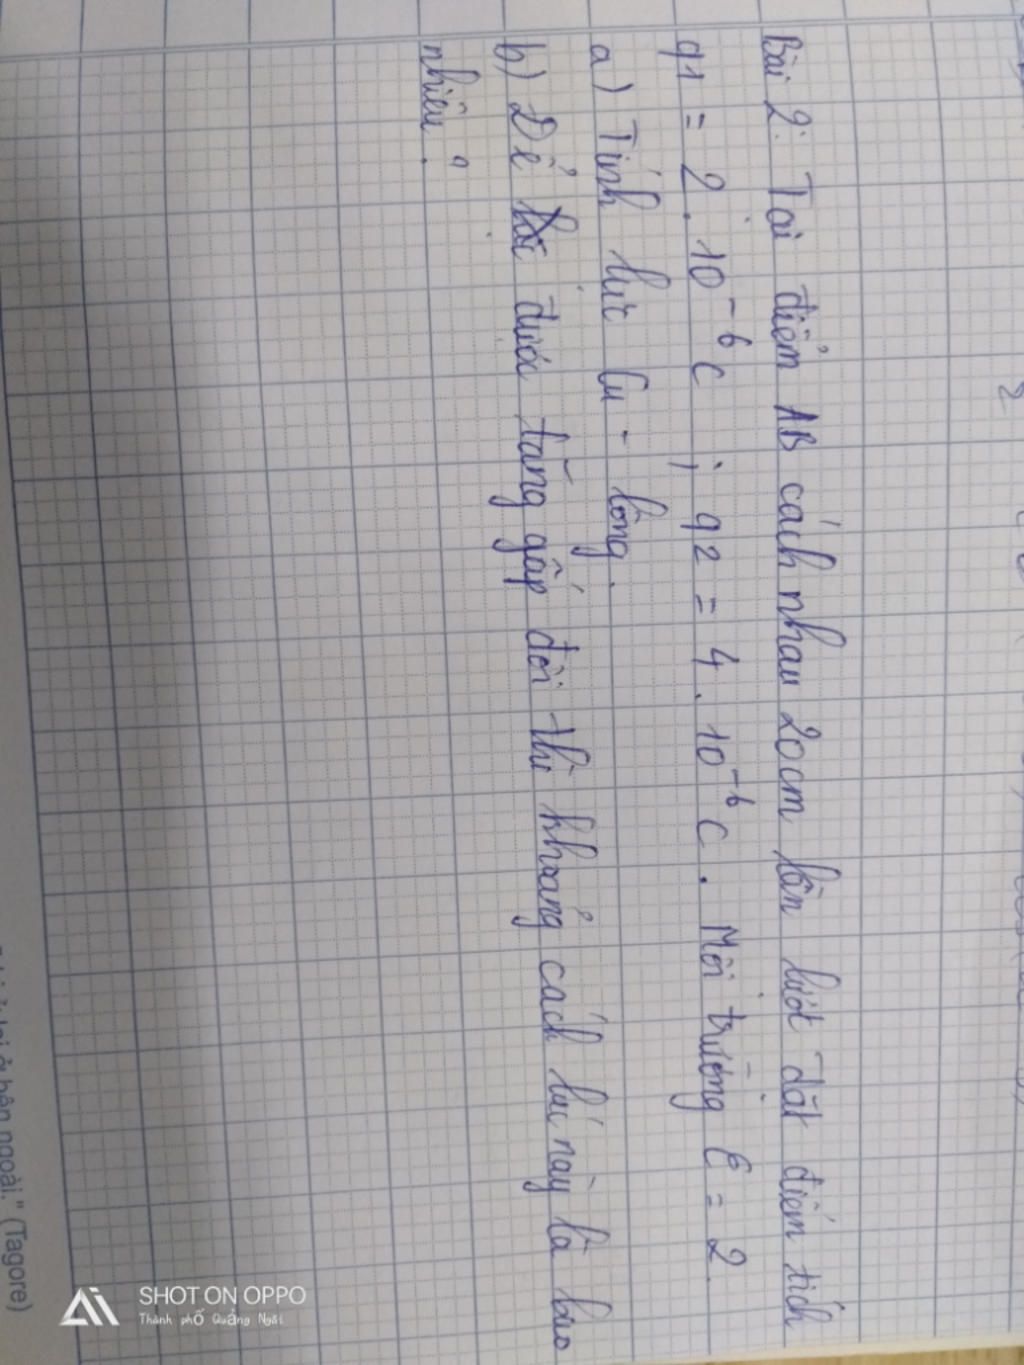 Bài 2: Tại điểm AB cách nhau 20cm lần lượt đặt điểm tích
q1 = 2.10⁻⁶C ; q2 = 4.10⁻⁶C. Môi trường ε = 2.
a) Tính lực Cu - lông.
b) Để lực được tăng gấp đôi thì khoảng cách lúc này là bao
nhiêu?
2
ở bên ngoài." (Tagore)
SHOT ON OPPO
Thành phố Quảng Ngãi